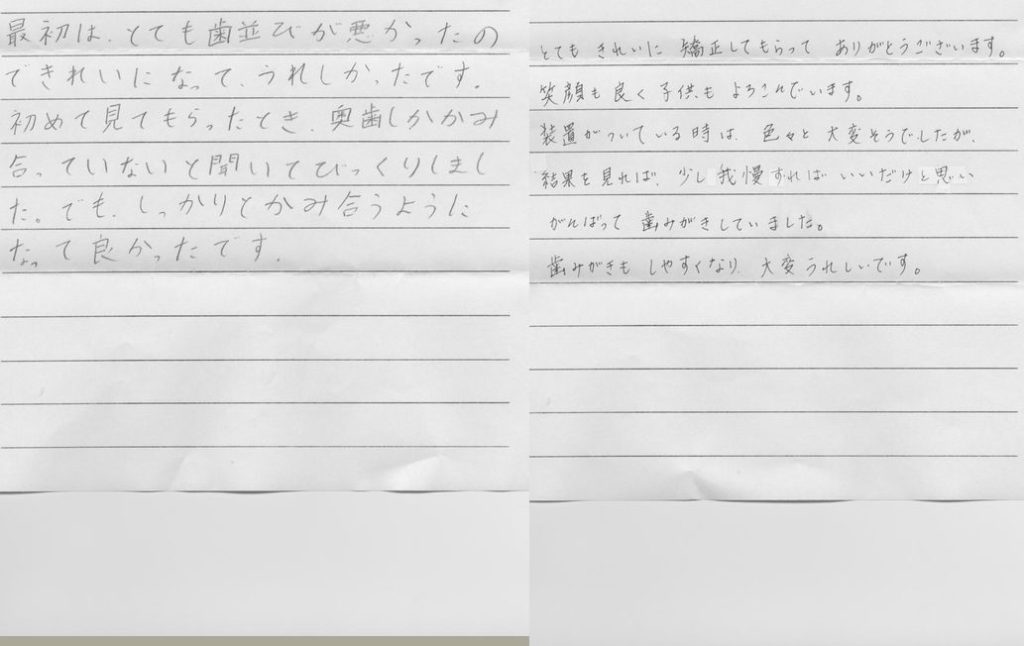 最初は、とても歯並びが悪かったの
できれいになって、うれしかったです。
初めて見てもらったとき、奥歯しかかみ
合っていないと聞いてびっくりしまし
た。でも、しっかりとかみ合うように
なって良かったです。
とても きれいに 矯正してもらって ありがとうございます。
笑顔も良く子供も よろこんでいます。
装置がついている時は、色々と 大変そうでしたが、
結果を見れば、少し我慢すれば いいだけと思い
がんばって 歯みがきしていました。
歯みがきも しやすくなり、大変うれしいです。